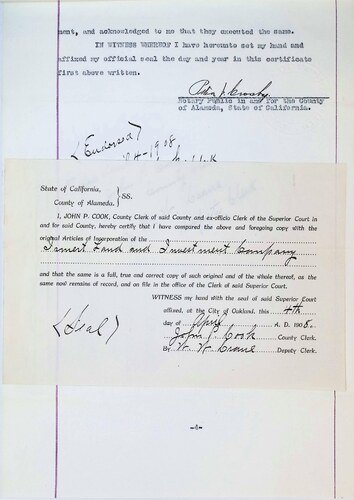 ment, and acknowledged to me that they executed the same.
IN WITNESS WHEREOF I have hereunto set my hand and
affixed my official seal the day and year in this certificate
first above written.
Notary Public in and for the County
of Alameda, State of California.
(Endorsed)
1908
State of California,
County of Alameda,
SS.
I, JOHN P. COOK, County Clerk of said County and ex-officio Clerk of the Superior Court in
and for said County, hereby certify that I have compared the above and foregoing copy with the
original Articles of Incorporation of the
Land and Investment Company
and that the same is a full, true and correct copy of such original and of the whole thereof, as
the same now remains of record, and on file in the office of the Clerk of said Superior Court.
WITNESS my hand with the seal of said Superior Court
affixed, at the City of Oakland, this 4th
day of April A. D. 1908.
(Seal)
John P. Cook County Clerk.
By W. W. Crane Deputy Clerk.
-4-